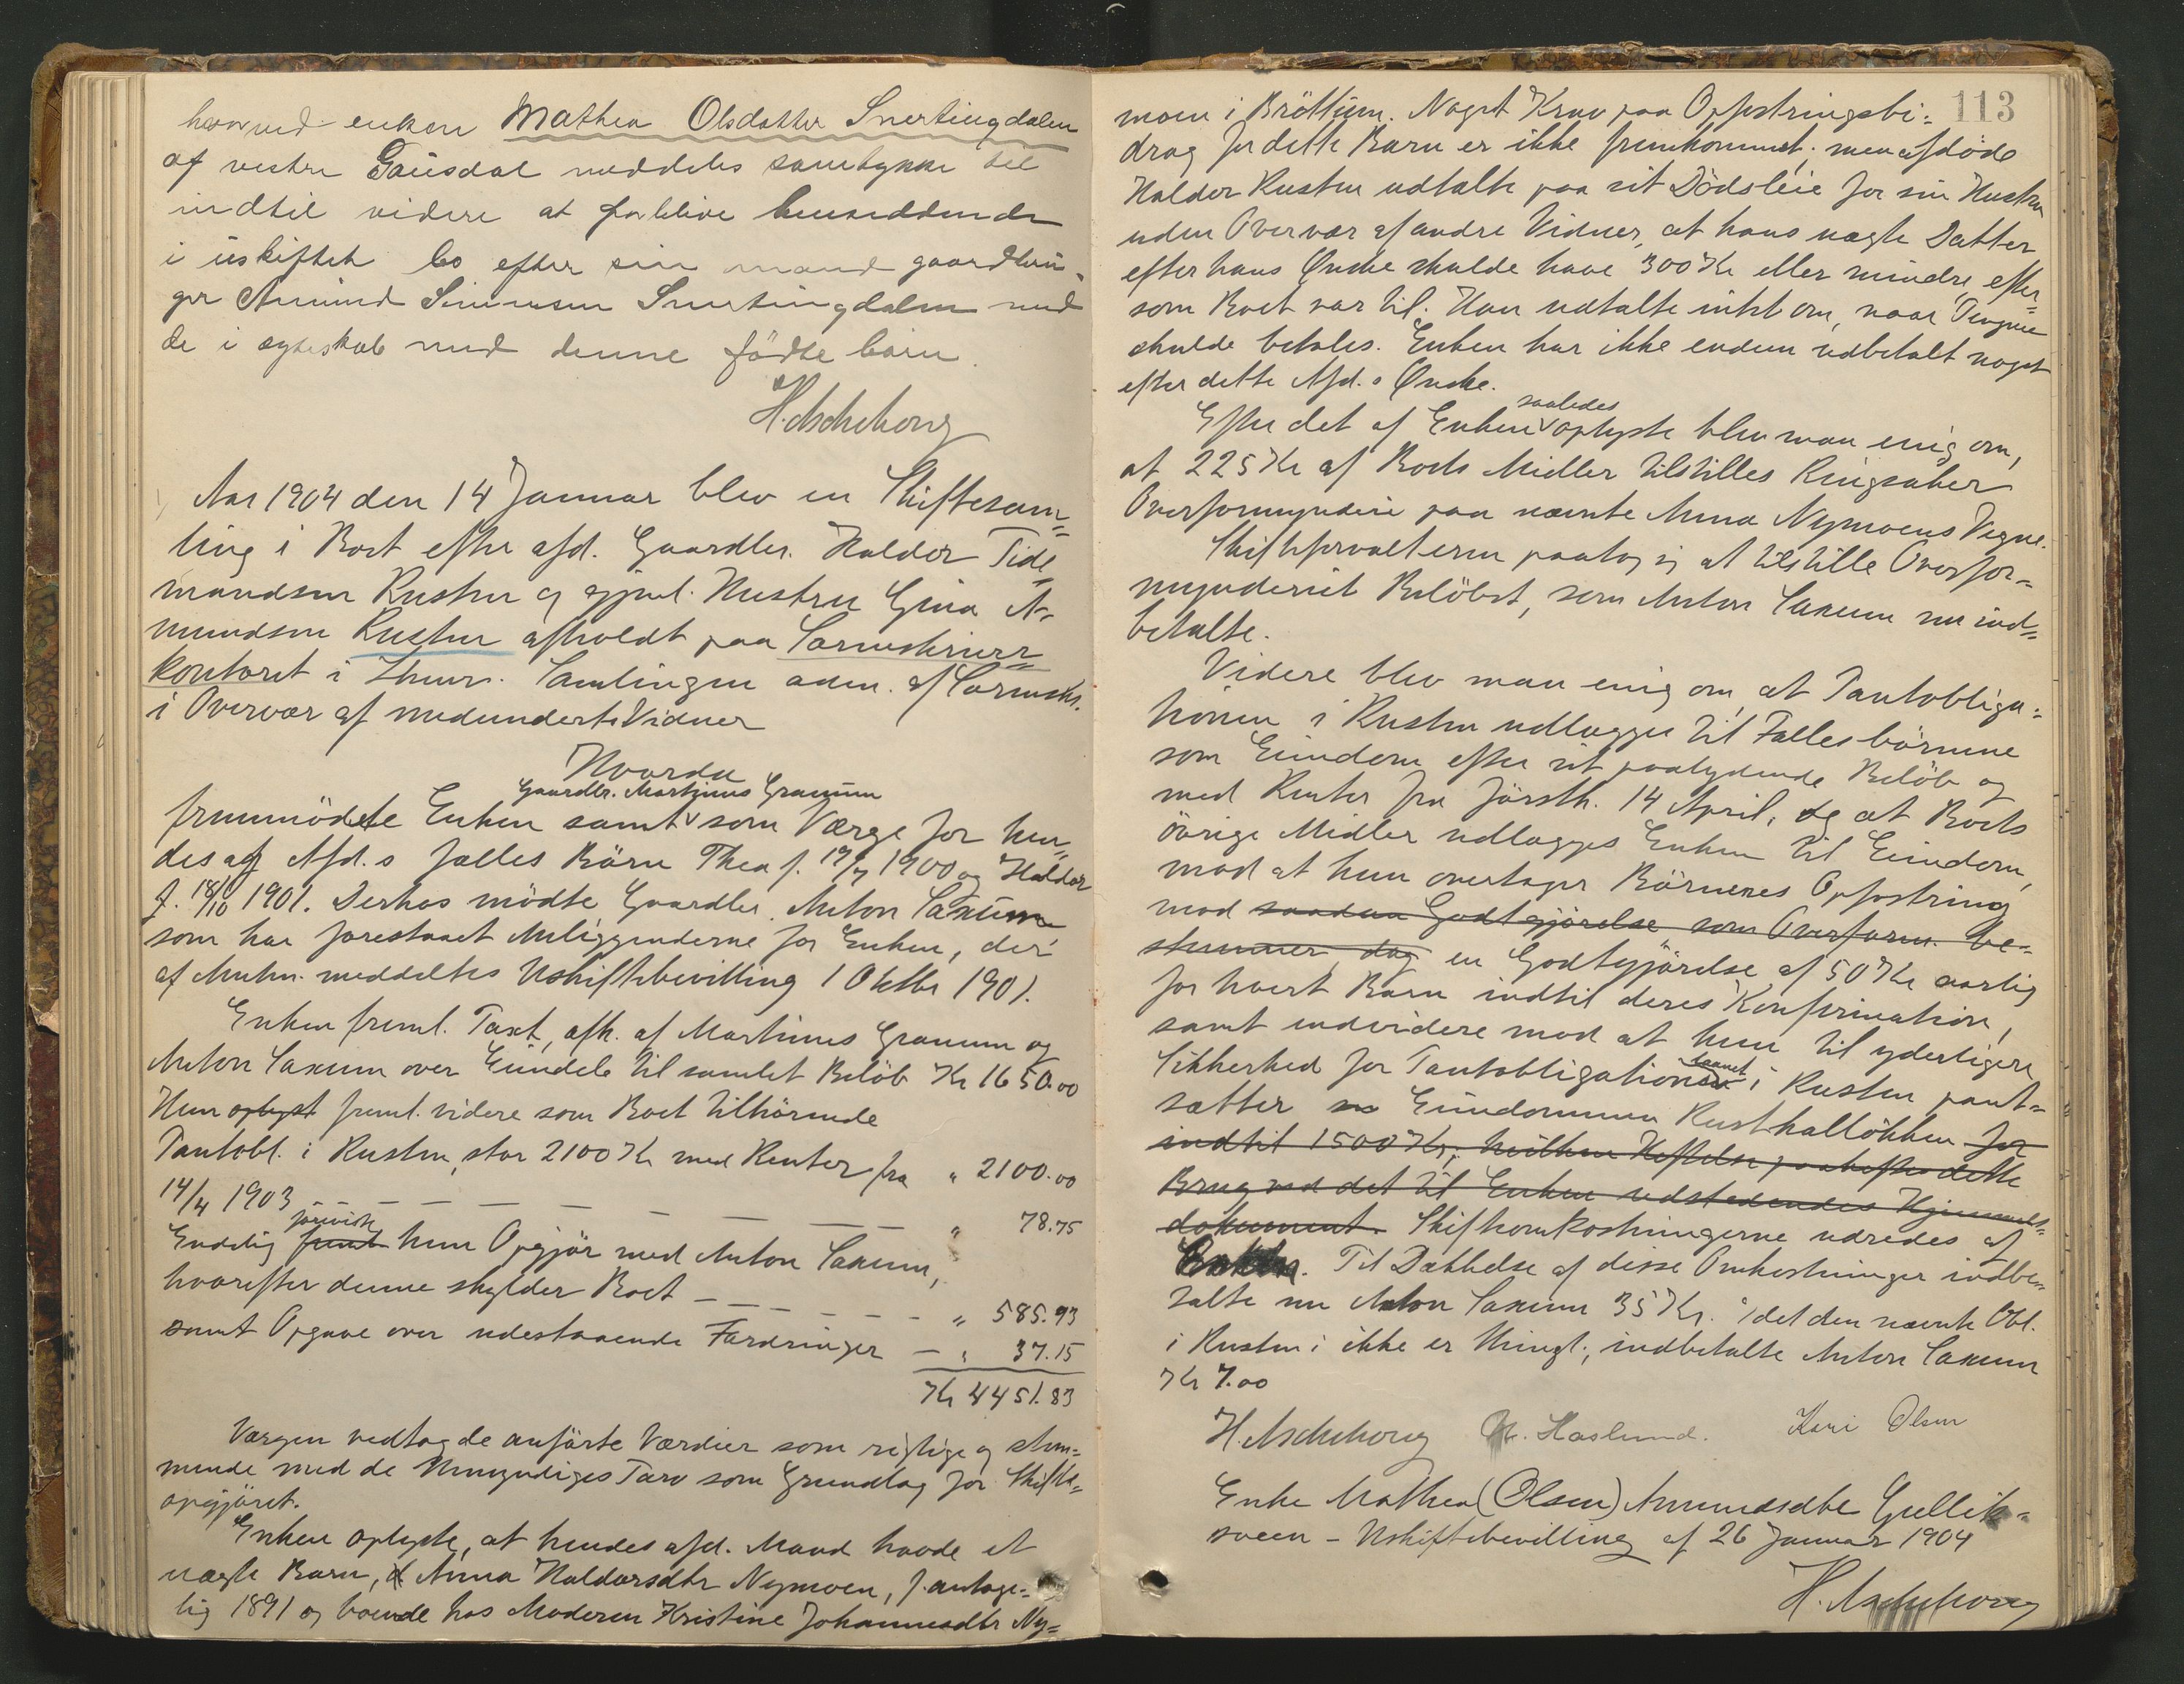 hvorved enken Mathea Olsdatter Snertingdalen
af vestre Gausdal meddeles samtykke til
indtil videre at forblive hensiddende
i uskiftet bo efter sin mand gaardbru-
ger Amund Simensen Snertingdalen med
de i egteskab med denne födte börn.
H. Aschehoug
Aar 1904 den 14 Januar blev en Skiftesam=
ling i Boet efter afd. Gaardbr. Haldor Tide=
mandsen Rusten og gjenl. Hustru Gina A=
mundsen Rusten afholdt paa Sorenskriver=
kontoret i Lhmr. Samlingen adm. af Sorenskr.
i Overvær af medunderte Vidner
Hvorda
Gaardbr. Martinus Granum
fremmödte Enken samt som Værge for hen=
des og Afd.s fælles Börn Thea f. 19/7 1900 og Haldor
f. 18/10 1901. Derhos mödte Gaardbr. Anton Saxum
som har forestaaet Anliggenderne for Enken, der
af Amtm. meddeltes Uskiftebevilling 1 Oktbr 1901.
Enken freml. Taxt, afh. af Martinus Granum og
Anton Saxum over Eiendele til samlet Belöb Kr 1650.00
Hun oplyst freml. videre som Boet tilhörende
Pantobl. i Rusten, stor 2100 Kr med Renter fra " 2100.00
14/4 1903 - - - - - - - " 78.75
foreviste
Endelig freml. hun Opgjör med Anton Saxum,
hvorefter denne skylder Boet - - - - - - " 585.93
samt Opgave over udestaaende Fordringer - " 37.15
Kr 4451.83
Værgen vedtog de anförte Værdier som rigtige og stem=
mende med de Umyndiges Tarv som Grundlag for Skifte=
opgjöret.
Enken oplyste, at hendes afd. Mand havde et
uægte Barn, Anna Haldorsdtr Nymoen, f. antage=
lig 1891 og boende hos Moderen Kristine Johannesdtr Ny=
113
moen i Bröttum. Noget Krav paa Opfostringsbi=
drag for dette Barn er ikke fremkommet; men afdöde
Haldor Rusten udtalte paa sit Dödsleie for sin Hustru
uden Overvær af andre Vidner, at hans uægte Datter
efter hans Ønske skulde have 300 Kr eller mindre, efter=
som Boet var til. Han udtalte intet om, naar Pengene
skulde betales. Enken har ikke endnu udbetalt noget
efter dette Afd.s Ønske.
saaledes
Efter det af Enken oplyste blev man enig om,
at 225 Kr af Boets Midler tilstilles Ringsaker
Overformynderi paa nævnte Anna Nymoens Vegne.
Skifteforvalteren paatog sig at tilstille Overfor=
mynderiet Belöbet, som Anton Saxum nu ind=
betalte.
Videre blev man enig om, at Pantobliga=
tionen i Rusten udlægges til Fællesbörnene
som Eiendom efter sit paalydende Belöb og
med Renter fra förstk. 14 April, og at Boets
övrige Midler udlægges Enken til Eiendom,
mod at hun overtager Börnenes Opfostring
mod saadan Godtgjörelse som Overform. be=
stemmer, dog en Godtgjörelse af 50 Kr aarlig
for hvert Barn indtil deres Konfirmation,
samt endvidere mod at hun til yderligere
Sikkerhed for Pantobligationen i Rusten pant=
sætter Eiendommen Rusthalløkken for
indtil 1500 Kr, hvilken Heftelse paaheftes dette
Brug ved det til Enken udstedendes Hjemmels=
dokument. Skifteomkostningerne udredes af
Enken. Til Dækkelse af disse Omkostninger indbe=
talte nu Anton Saxum 35 Kr. Idet den nævnte Obl.
i Rusten ikke er thingl., indbetalte Anton Saxum
Kr 7.00
H. Aschehoug Haslund. Kari Olsen
Enke Mathea (Olsen) Amundsdtr Gullik=
sveen - Uskiftebevilling af 26 Januar 1904
H. Aschehoug